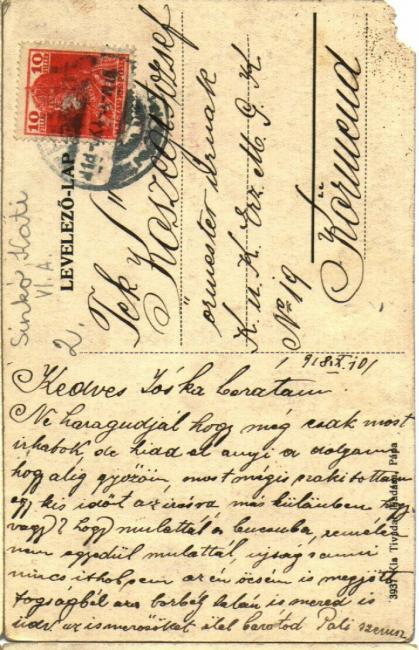 10
10
LEVELEZŐ-LAP
Sinkó Kati
VI. A.
2.
Tek
Kőszegi József
őrmester Urnak
K. u. K. Erz. M. G. K.
No 19
Körmend
918 X. 10
Kedves Jóska barátam
Ne haragudjál hogy még csak most
irhatok, de hidd el anyi a dolgam
hogy alig győzöm, most mégis szakitottam
egy kis időt az irásra más külömben hogy
vagy? hogy mulattál a bucsuba, remélem
nem egyedül mulattál, ujság semmi
nincs itthol sem az én öcsém is megjött
fogságból
is mered is
üdv. az ismerősöket ölel barátod Pali szervusz
3937 Kis Tivadar kiadása Pápa